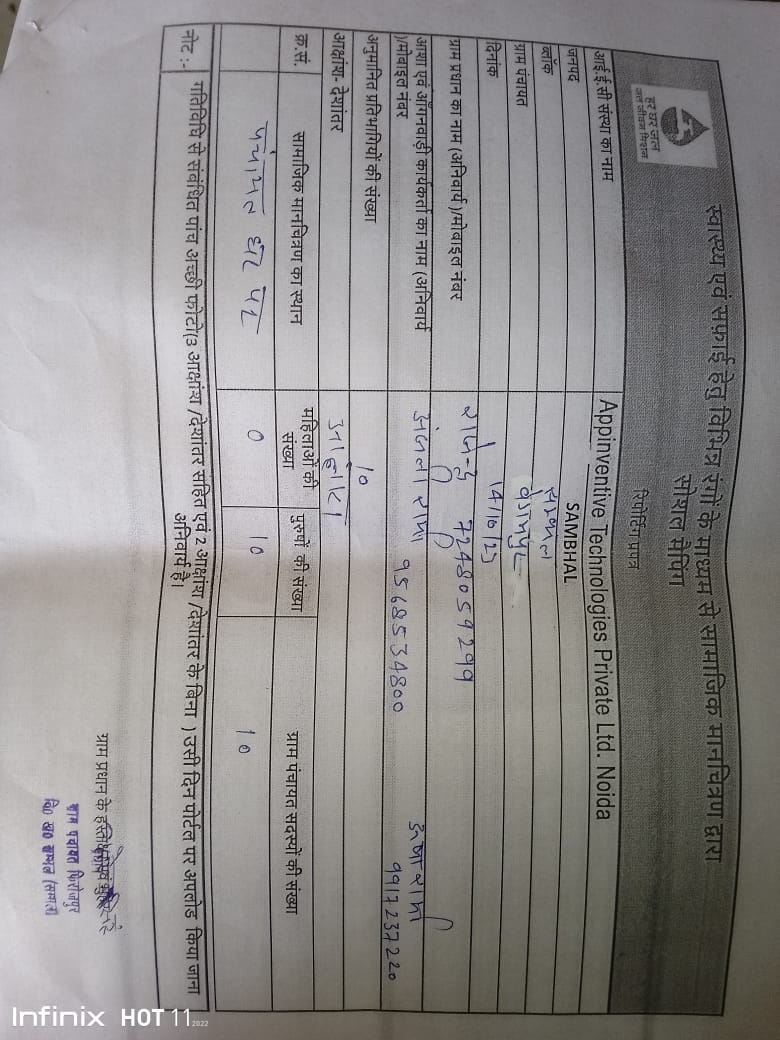 स्वास्थ्य एवं सफ़ाई हेतु विभिन्न रंगों के माध्यम से सामाजिक मानचित्रण द्वारा
सोशल मैपिंग
रिपोर्टिंग प्रपत्र
हर घर जल
जल जीवन मिशन
आई.ई.सी संस्था का नाम Appinventive Technologies Private Ltd. Noida
जनपद SAMBHAL
ब्लॉक सम्भल
ग्राम पंचायत
दिनांक 14/6/23
ग्राम प्रधान का नाम (अनिवार्य )/मोबाइल नंबर 7248059299
आशा एवं आँगनवाड़ी कार्यकर्ता का नाम (अनिवार्य
)/मोबाइल नंबर 9568534800 9917237220
अनुमानित प्रतिभागियों की संख्या 10
आक्षांश- देशांतर
क्र.सं. सामाजिक मानचित्रण का स्थान महिलाओं की संख्या पुरुषों की संख्या ग्राम पंचायत सदस्यों की संख्या
पंचायत घर पर 0 10 10
नोट :- गतिविधि से संबंधित पांच अच्छी फोटो(3 आक्षांश /देशांतर सहित एवं 2 आक्षांश /देशांतर के बिना ) उसी दिन पोर्टल पर अपलोड किया जाना
अनिवार्य है।
ग्राम प्रधान के
ग्राम पंचायत फिरोजपुर
वि० ख० सम्भल (सम्भल)
Infinix HOT 11 2022